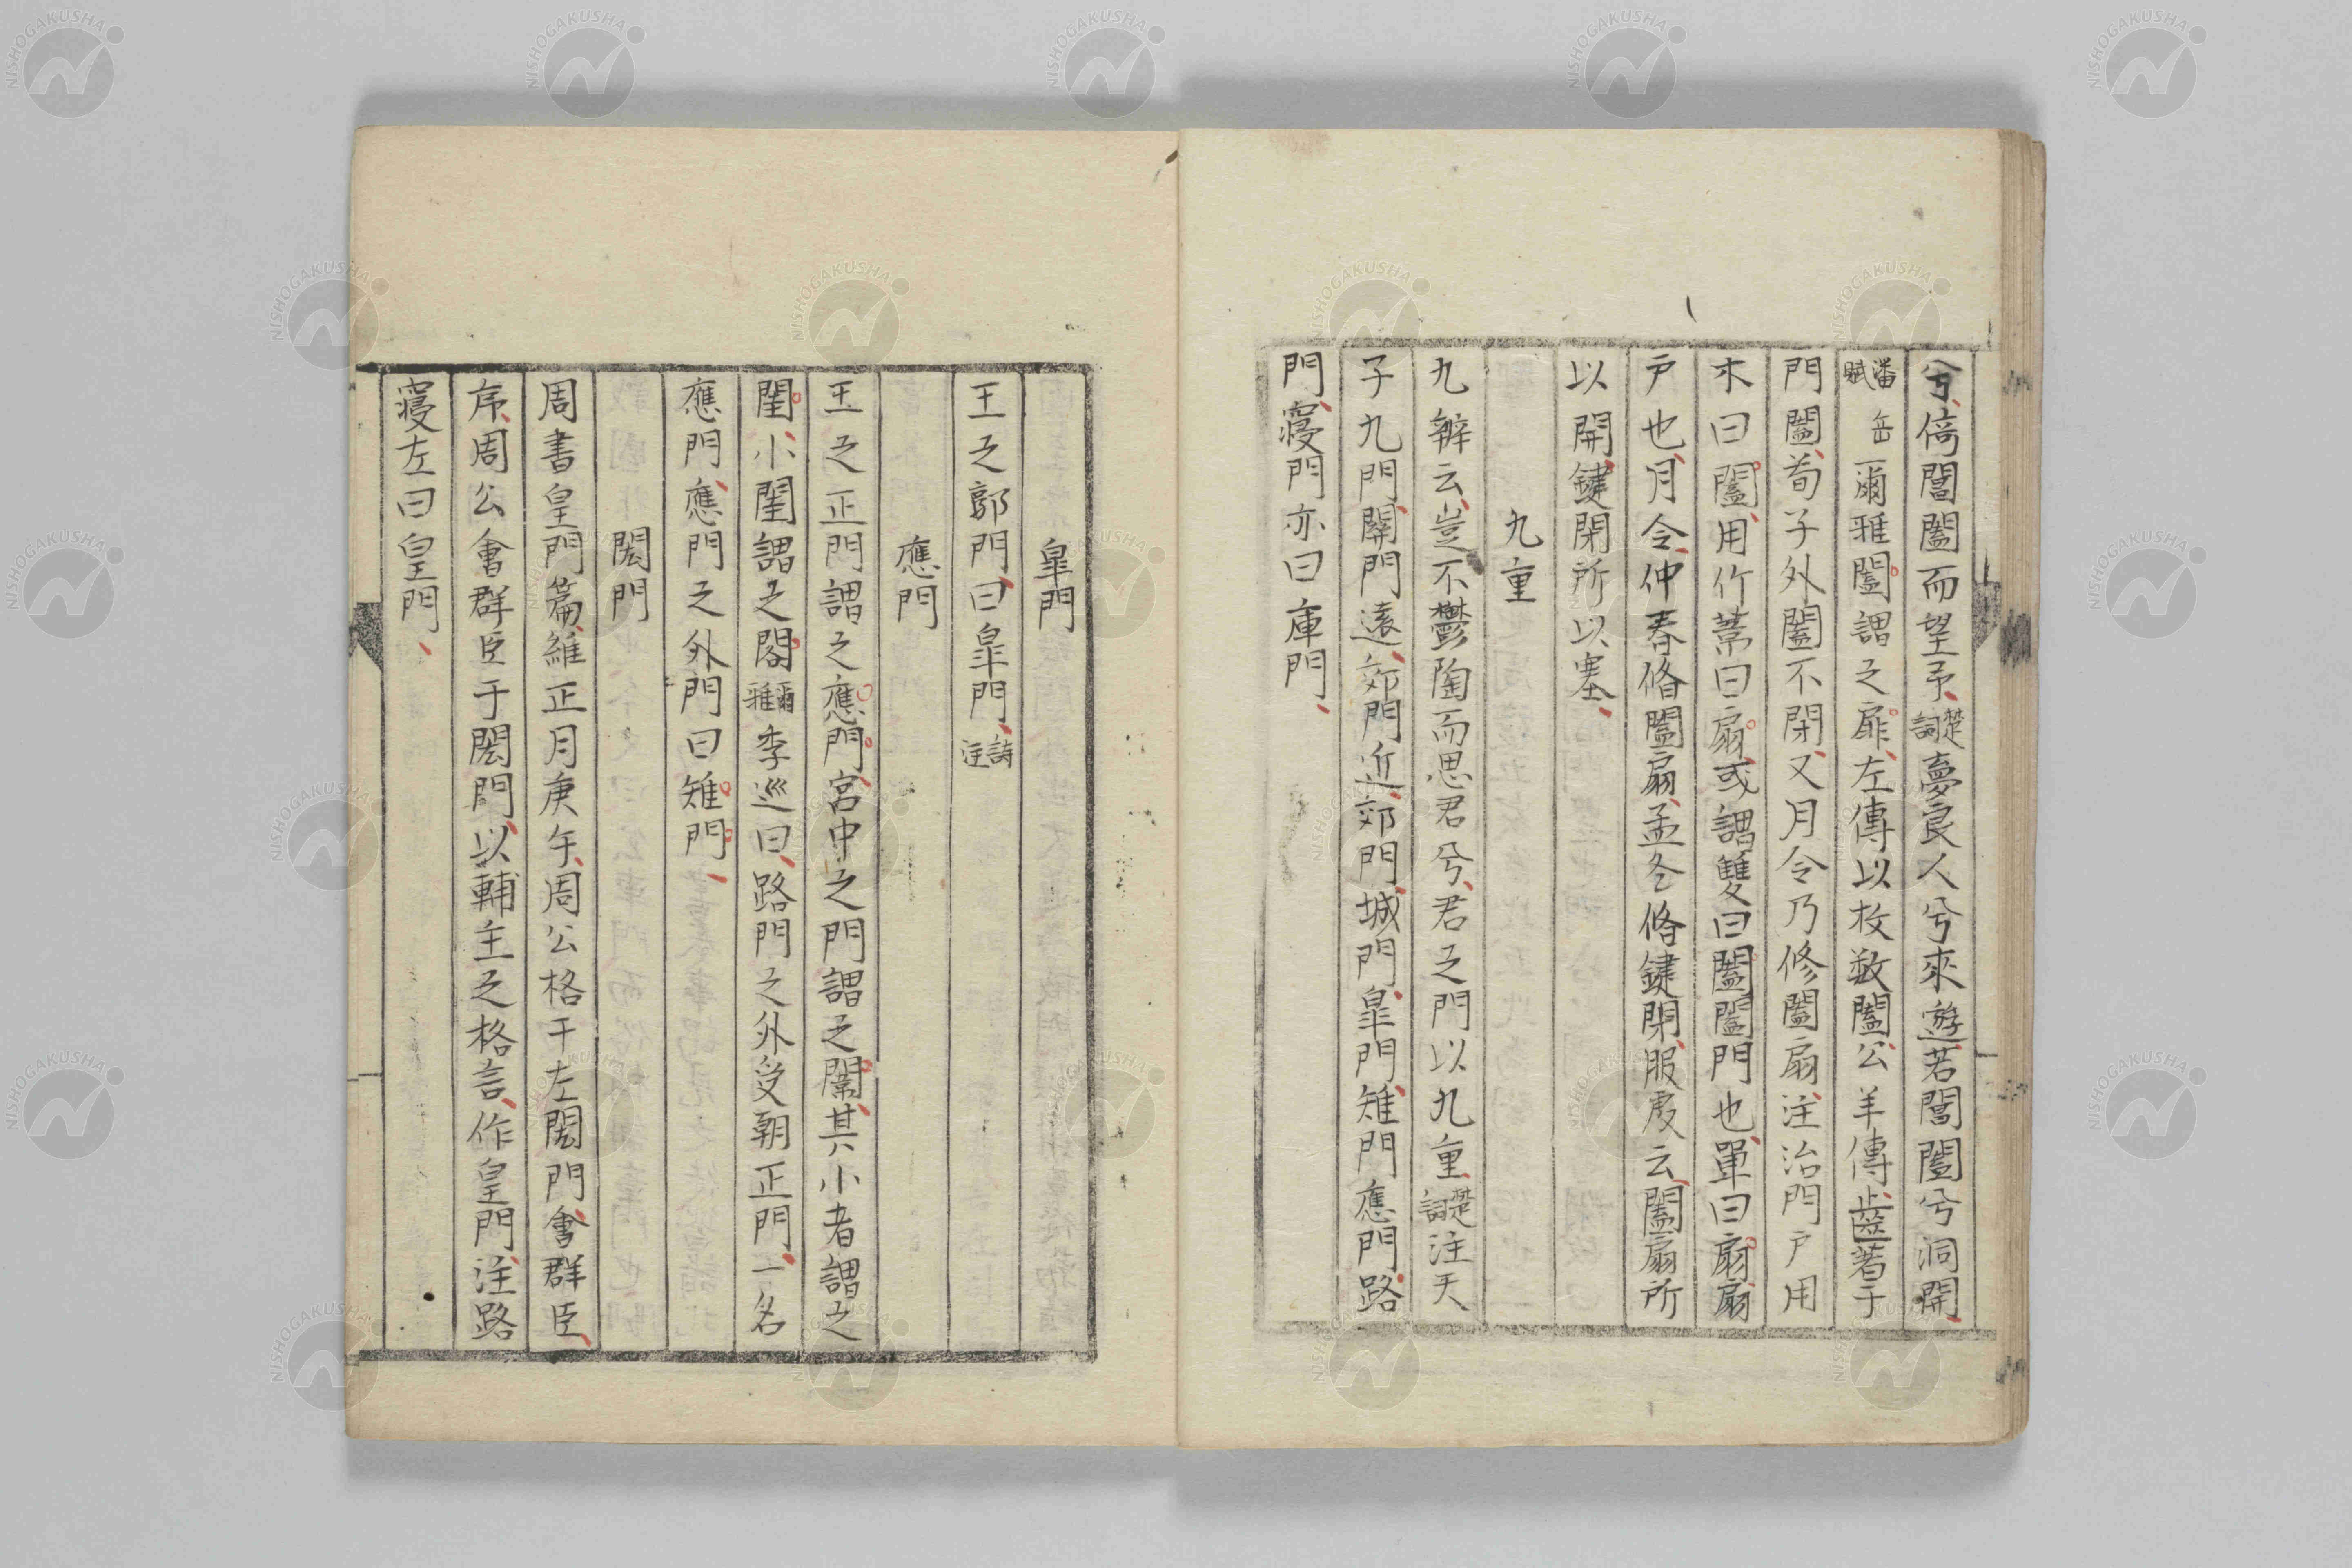 兮、倚閶闔而望予、楚詞夢良人兮來遊、若閶闔兮洞開、
潘岳賦爾雅闔謂之扉、左傳以枚數闔、公羊傳、齒著于
門闔、荀子外闔不閉、又月令乃修闔扇、注治門戶用
木曰闔、用竹葦曰扇、或謂雙曰闔闔門也、單曰扇扇
戶也、月令、仲春脩闔扇、孟冬脩鍵閉、服虔云、闔扇所
以開、鍵閉所以塞、
九重
九辨云、豈不鬱陶而思君兮、君之門以九重、楚詞注天
子九門、關門遠、郊門近、郊門、城門、皐門、雉門、應門、路
門、寢門亦曰庫門、
皐門
王之郭門、曰皐門、詩注
應門
王之正門謂之應門、宮中之門謂之闈、其小者謂之
閨、小閨謂之閤爾雅李巡曰、路門之外受朝正門、一名
應門、應門之外門曰雉門、
閎門
周書皇門篇、維正月庚午、周公格于左閎門、會群臣、
序、周公會群臣于閎門、以輔主之格言、作皇門、注、路
寢左曰皇門、
NISHOGAKUSHA